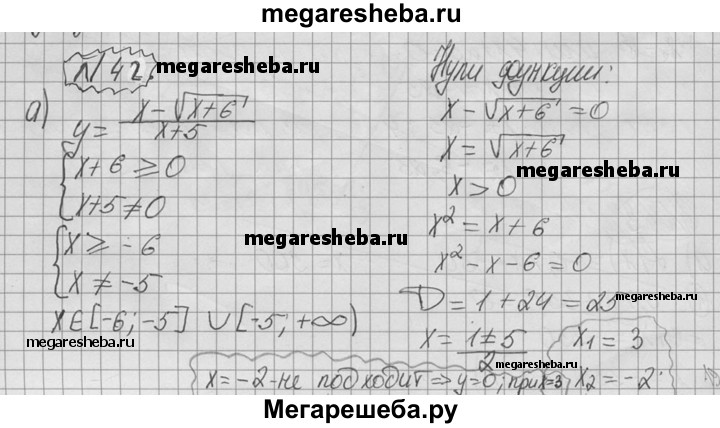 megaresheba.ru
№42. megaresheba.ru
а) y = (x - √(x+6)) / (x+5)
{ x+6 ≥ 0
x+5 ≠ 0
{ x ≥ -6 megaresheba.ru
x ≠ -5
x∈[-6; -5] ∪ [-5; +∞)
megaresheba.ru
Нули функции:
x - √(x+6) = 0
x = √(x+6)
megaresheba.ru
x > 0
x² = x + 6
x² - x - 6 = 0
D = 1 + 24 = 25
x = (1±5)/2 x₁ = 3
megaresheba.ru
x = -2 - не подходит ⇒ y=0; при x=3 x₂ = -2
Мегарешеба.ру